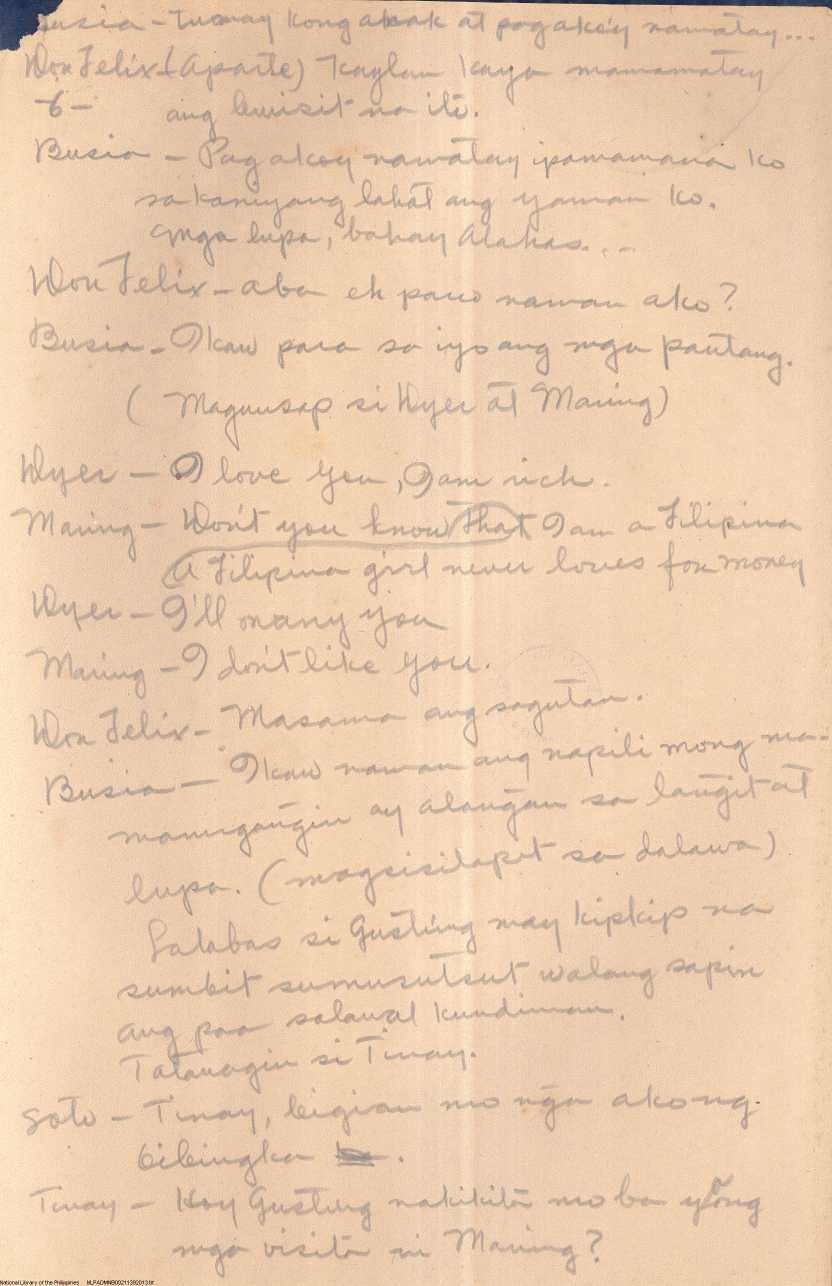 Busia - Tunay kong anak at pag ako'y namatay...
Don Felix - (Aparte) Kaylan kaya mamamatay
-6- ang bwisit na ito.
Busia - Pag akoy namatay ipamamana ko
sa kaniyang lahat ang yaman ko.
Mga lupa, bahay Alahas...
Don Felix - aba eh paano naman ako?
Busia - Ikaw para sa iyo ang mga pautang.
( Maguusap si Dyer at Maring)
Dyer - I love you, I am rich.
Maring - Don't you know that I am a Filipina
A Filipina girl never loves for money
Dyer - I'll marry you
Maring - I don't like you.
Don Felix - Masama ang sagutan.
Busia - Ikaw naman ang napili mong ma-
manugangin ay alangan sa langit at
lupa. (magsisilapit sa dalawa)
Lalabas si Gusting may kipkip na
sumbit sumusutsut walang sapin
ang paa salawal kundiman.
Tatawagin si Tinay.
Goto - Tinay, bigian mo nga ako ng
bibingka.
Tinay - Hoy Gusting nakikita mo ba yong
mga visita ni Maring?
National Library of the Philippines